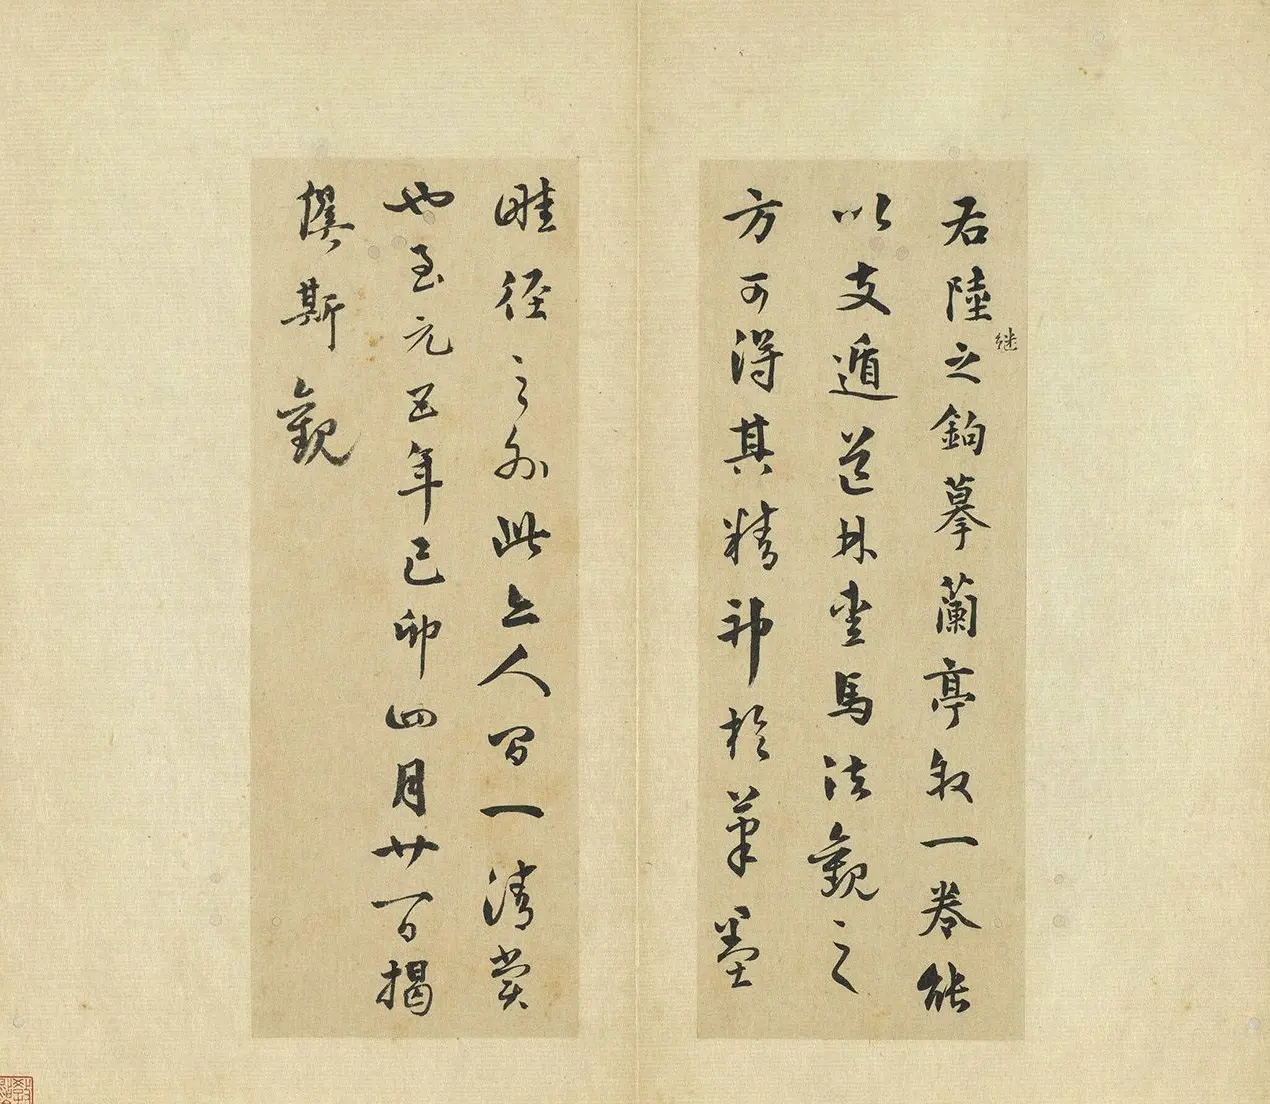 右陸继之鉤摹蘭亭叙一卷能
以支遁道林畜馬法觀之
方可得其精神於筆墨
畦徑之外此亦人間一清賞
也至元五年己卯四月廿一日揭
傒斯觀